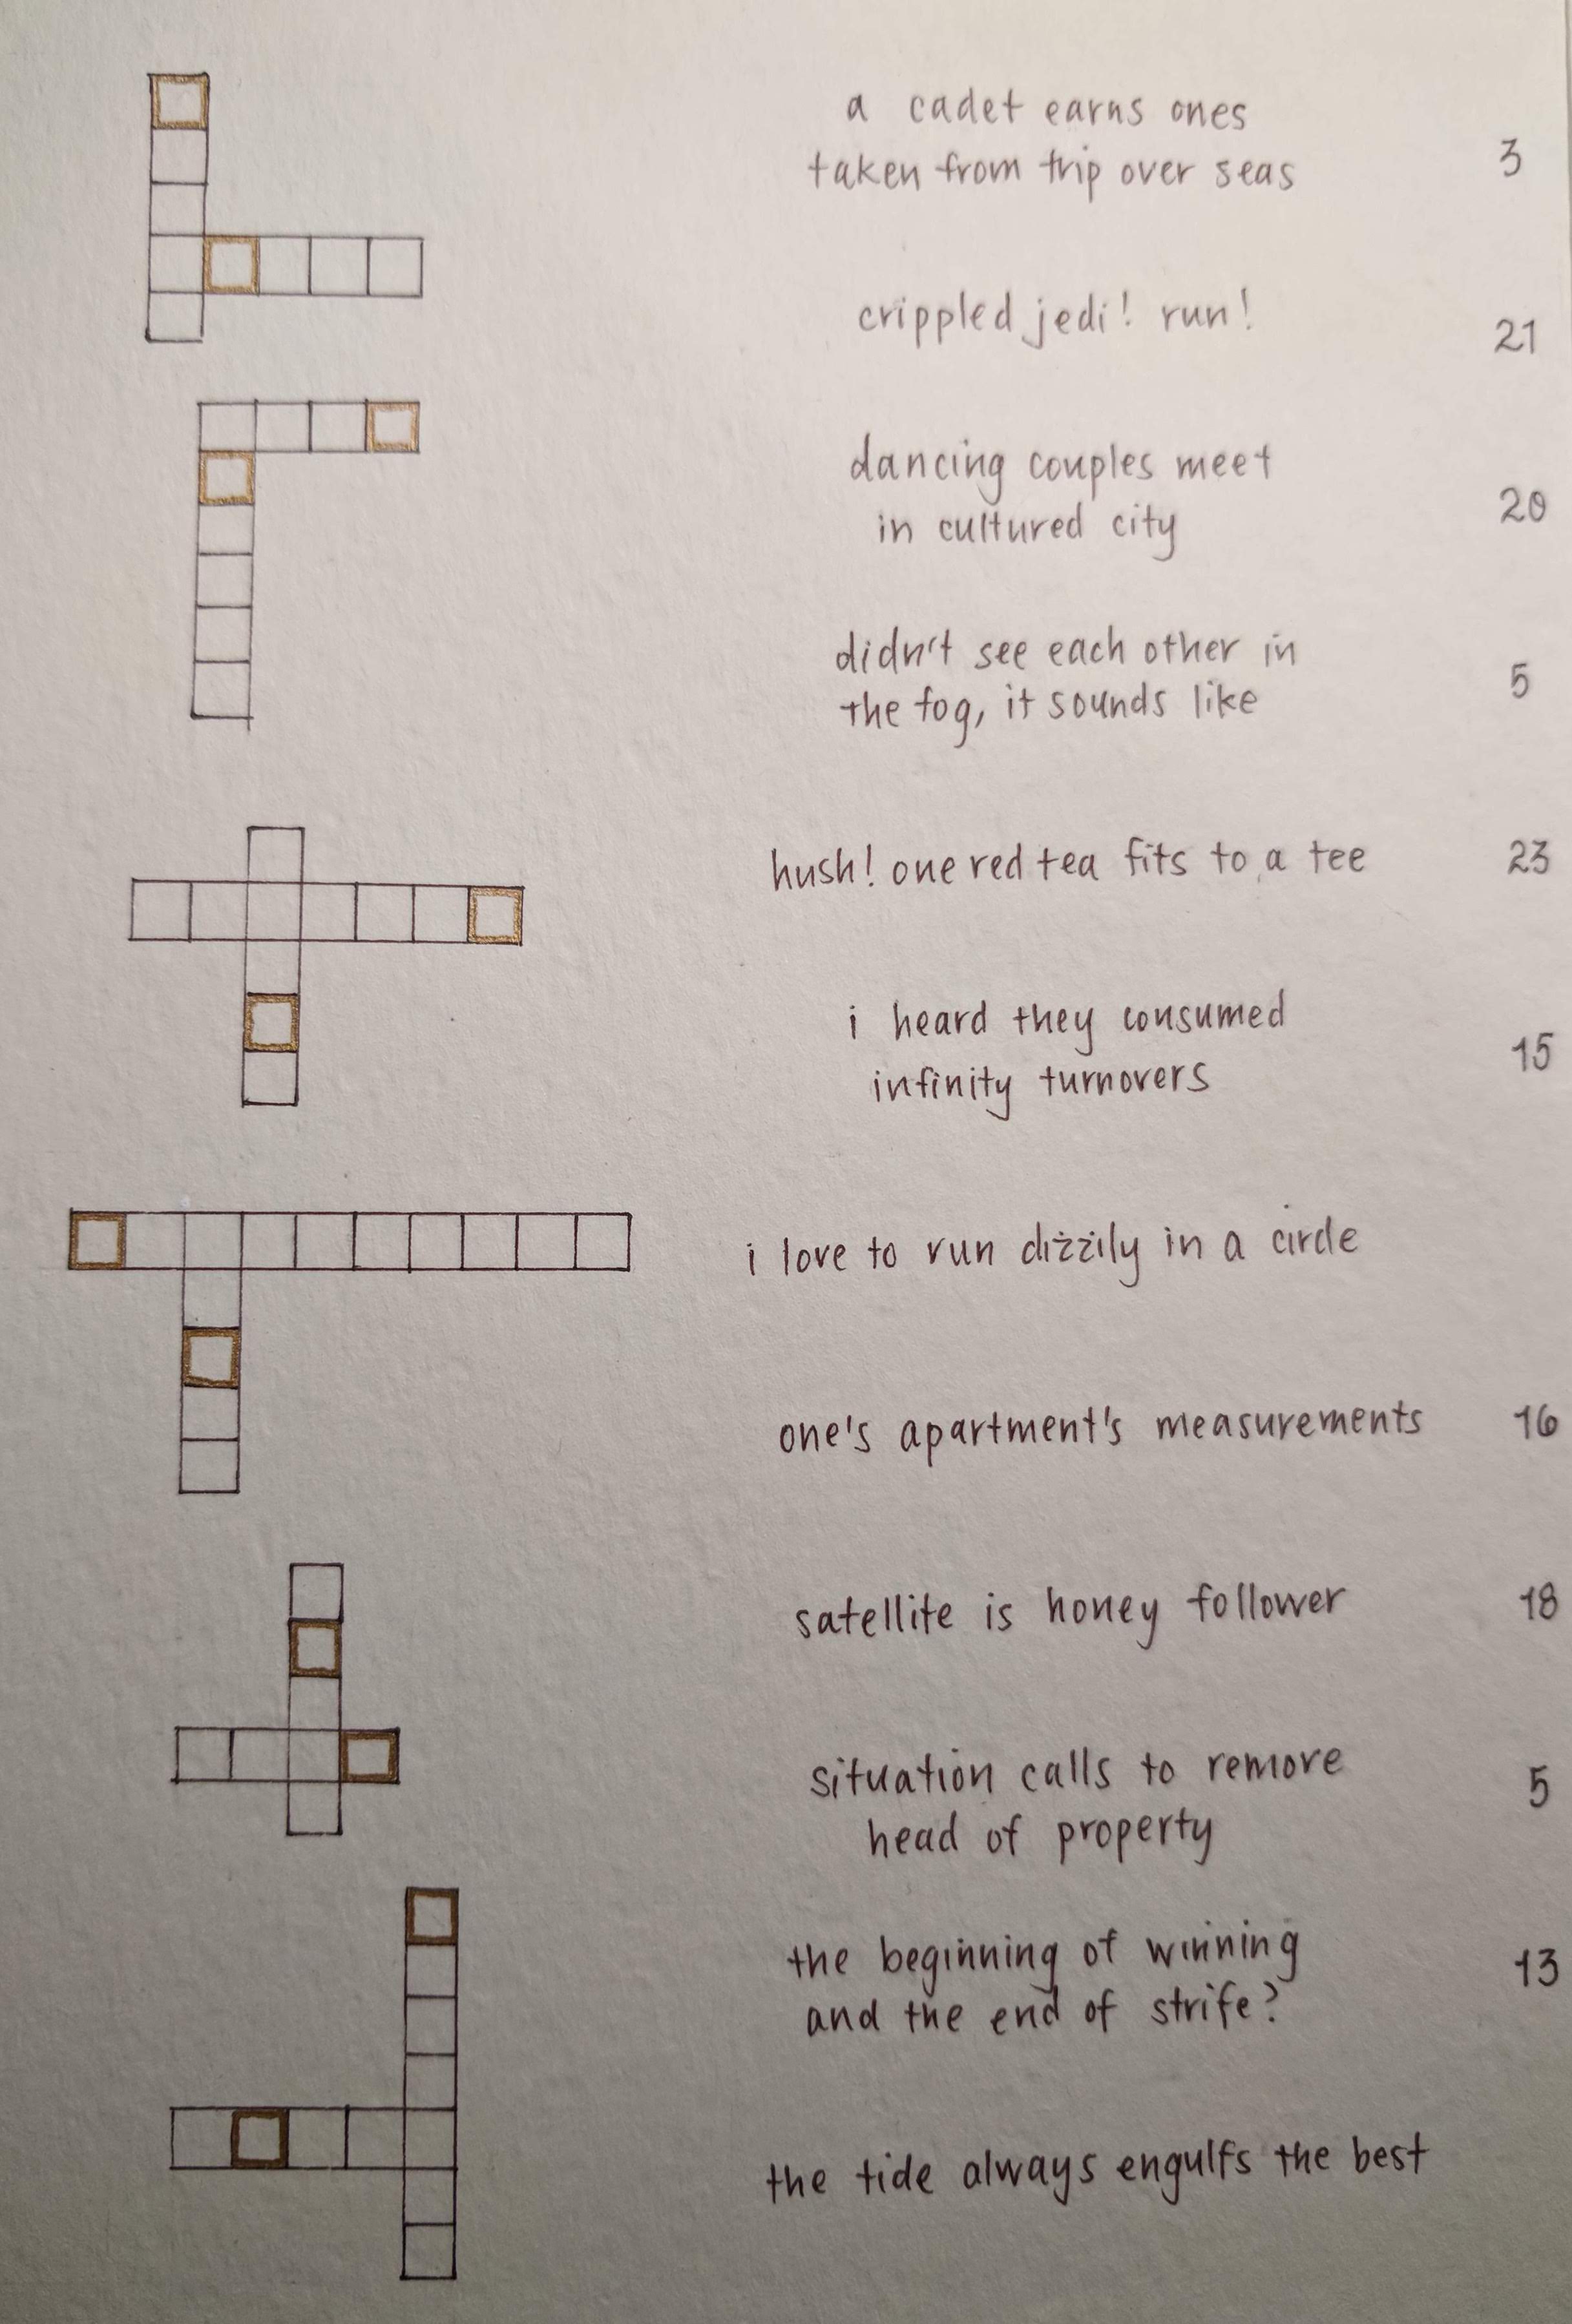 a cadet earns ones
taken from trip over seas
3
crippled jedi! run!
21
dancing couples meet
in cultured city
20
didn't see each other in
the fog, it sounds like
5
hush! one red tea fits to a tee
23
i heard they consumed
infinity turnovers
15
i love to run dizzily in a circle
one's apartment's measurements
16
satellite is honey follower
18
situation calls to remove
head of property
5
the beginning of winning
and the end of strife?
13
the tide always engulfs the best